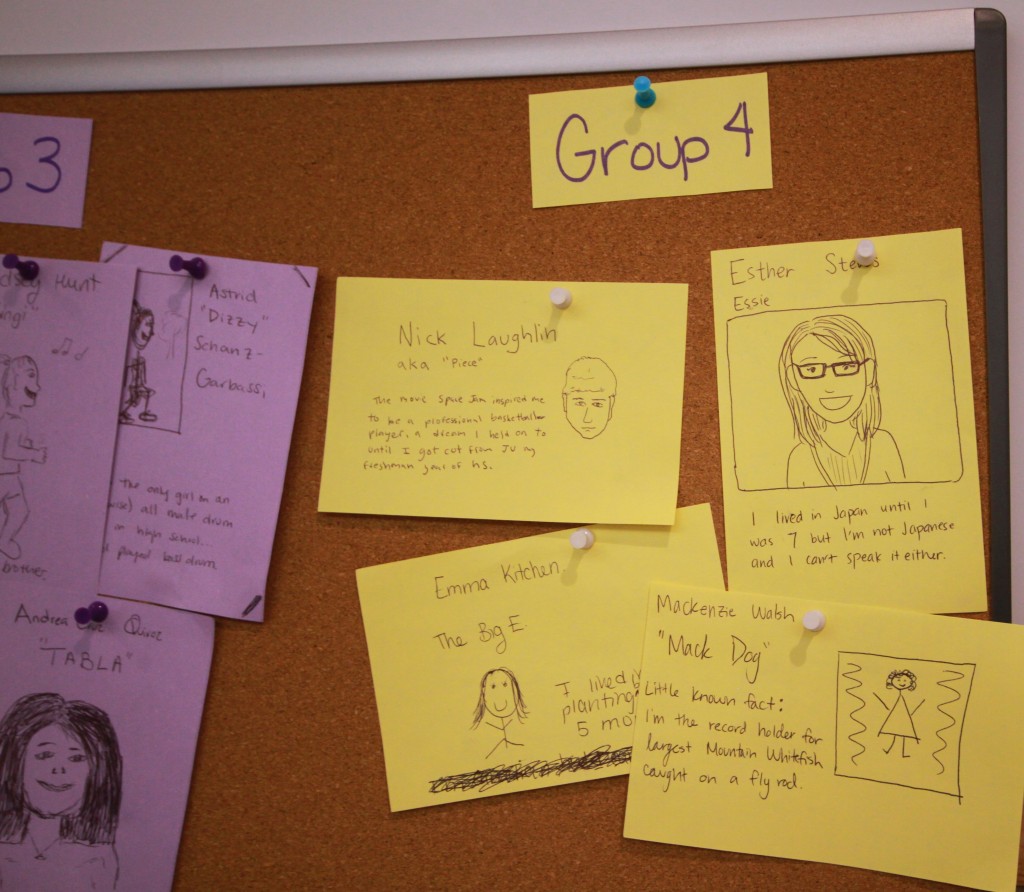 3
Group 4
Hunt
Astrid
"Dizzy"
Schanz-
Garbassi
The only girl on an
all male drum
high school...
played bass drum
brother.
Andrea Quiroz
"TABLA"
Nick Laughlin
aka "Piece"
The movie Space Jam inspired me
to be a professional basketball
player, a dream I held on to
until I got cut from JV my
freshman year of HS.
Esther
Essie
I lived in Japan until I
was 7 but I'm not Japanese
and I can't speak it either.
Emma Kitchen.
The Big E.
I lived
planting
5 mo
Mackenzie Walsh
"Mack Dog"
Little known fact:
I'm the record holder for
largest Mountain Whitefish
caught on a fly rod.